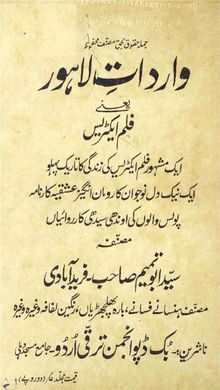 جملہ حقوق بحق مصنف محفوظ
وارداتِ لاہور
یعنی
فلم ایکٹریس
ایک مشہور فلم ایکٹریس کی زندگی کا تاریک پہلو
ایک نیک دل نوجوان کا رومان انگیز عشقیہ کارنامہ
پولس والوں کی اوندھی سیدھی کارروائیاں
مصنفہ
سید ابو تمیم صاحب فرید آبادی
مصنف ہنسانے فسانے، بارہ پھلجھڑیاں، رنگین لفافہ وغیرہ وغیرہ
ناشرین:۔ بک ڈپو انجمن ترقی اُردو۔ جامع مسجد دہلی
قیمت مجلد عمار (دو روپے)